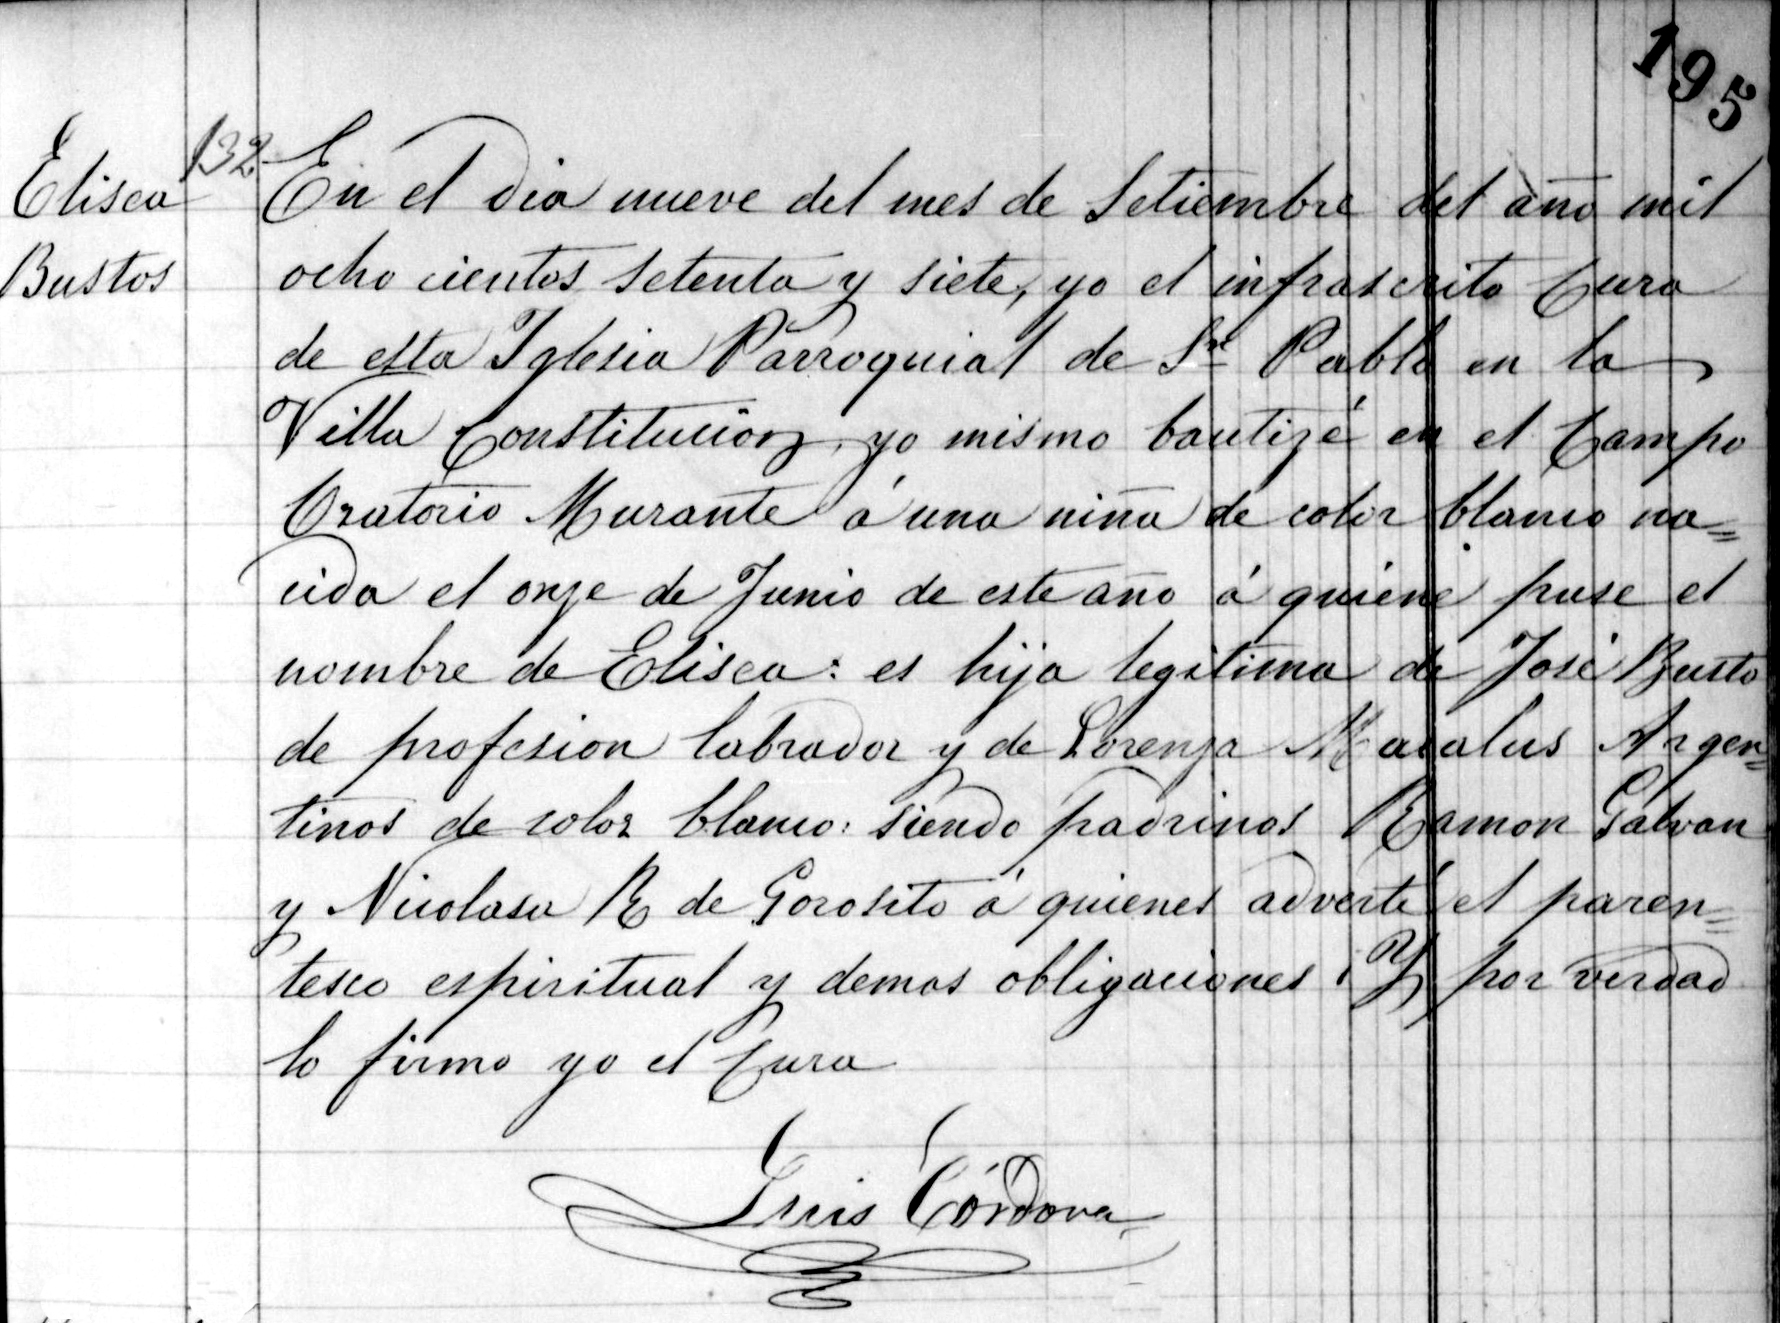 195
Elisea
Bustos
132
En el dia nueve del mes de Setiembre del año mil
ocho cientos setenta y siete, yo el infrascrito Cura
de esta Iglesia Parroquial de Sn Pablo en la
Villa Constitucion, yo mismo bautizé en el Campo
Oratorio Murante á una niña de color blanco na=
cida el onze de Junio de este año á quiene puse el
nombre de Elisea: es hija legitima de José Busto
de profesion labrador y de Lorenza Argen=
tinos de color blanco: siendo padrinos Ramon Galvan
y Nicolasa R de Gorosito á quienes advertí el paren=
tesco espiritual y demas obligaciones: Y por verdad
lo firmo yo el Cura
Luis Córdova